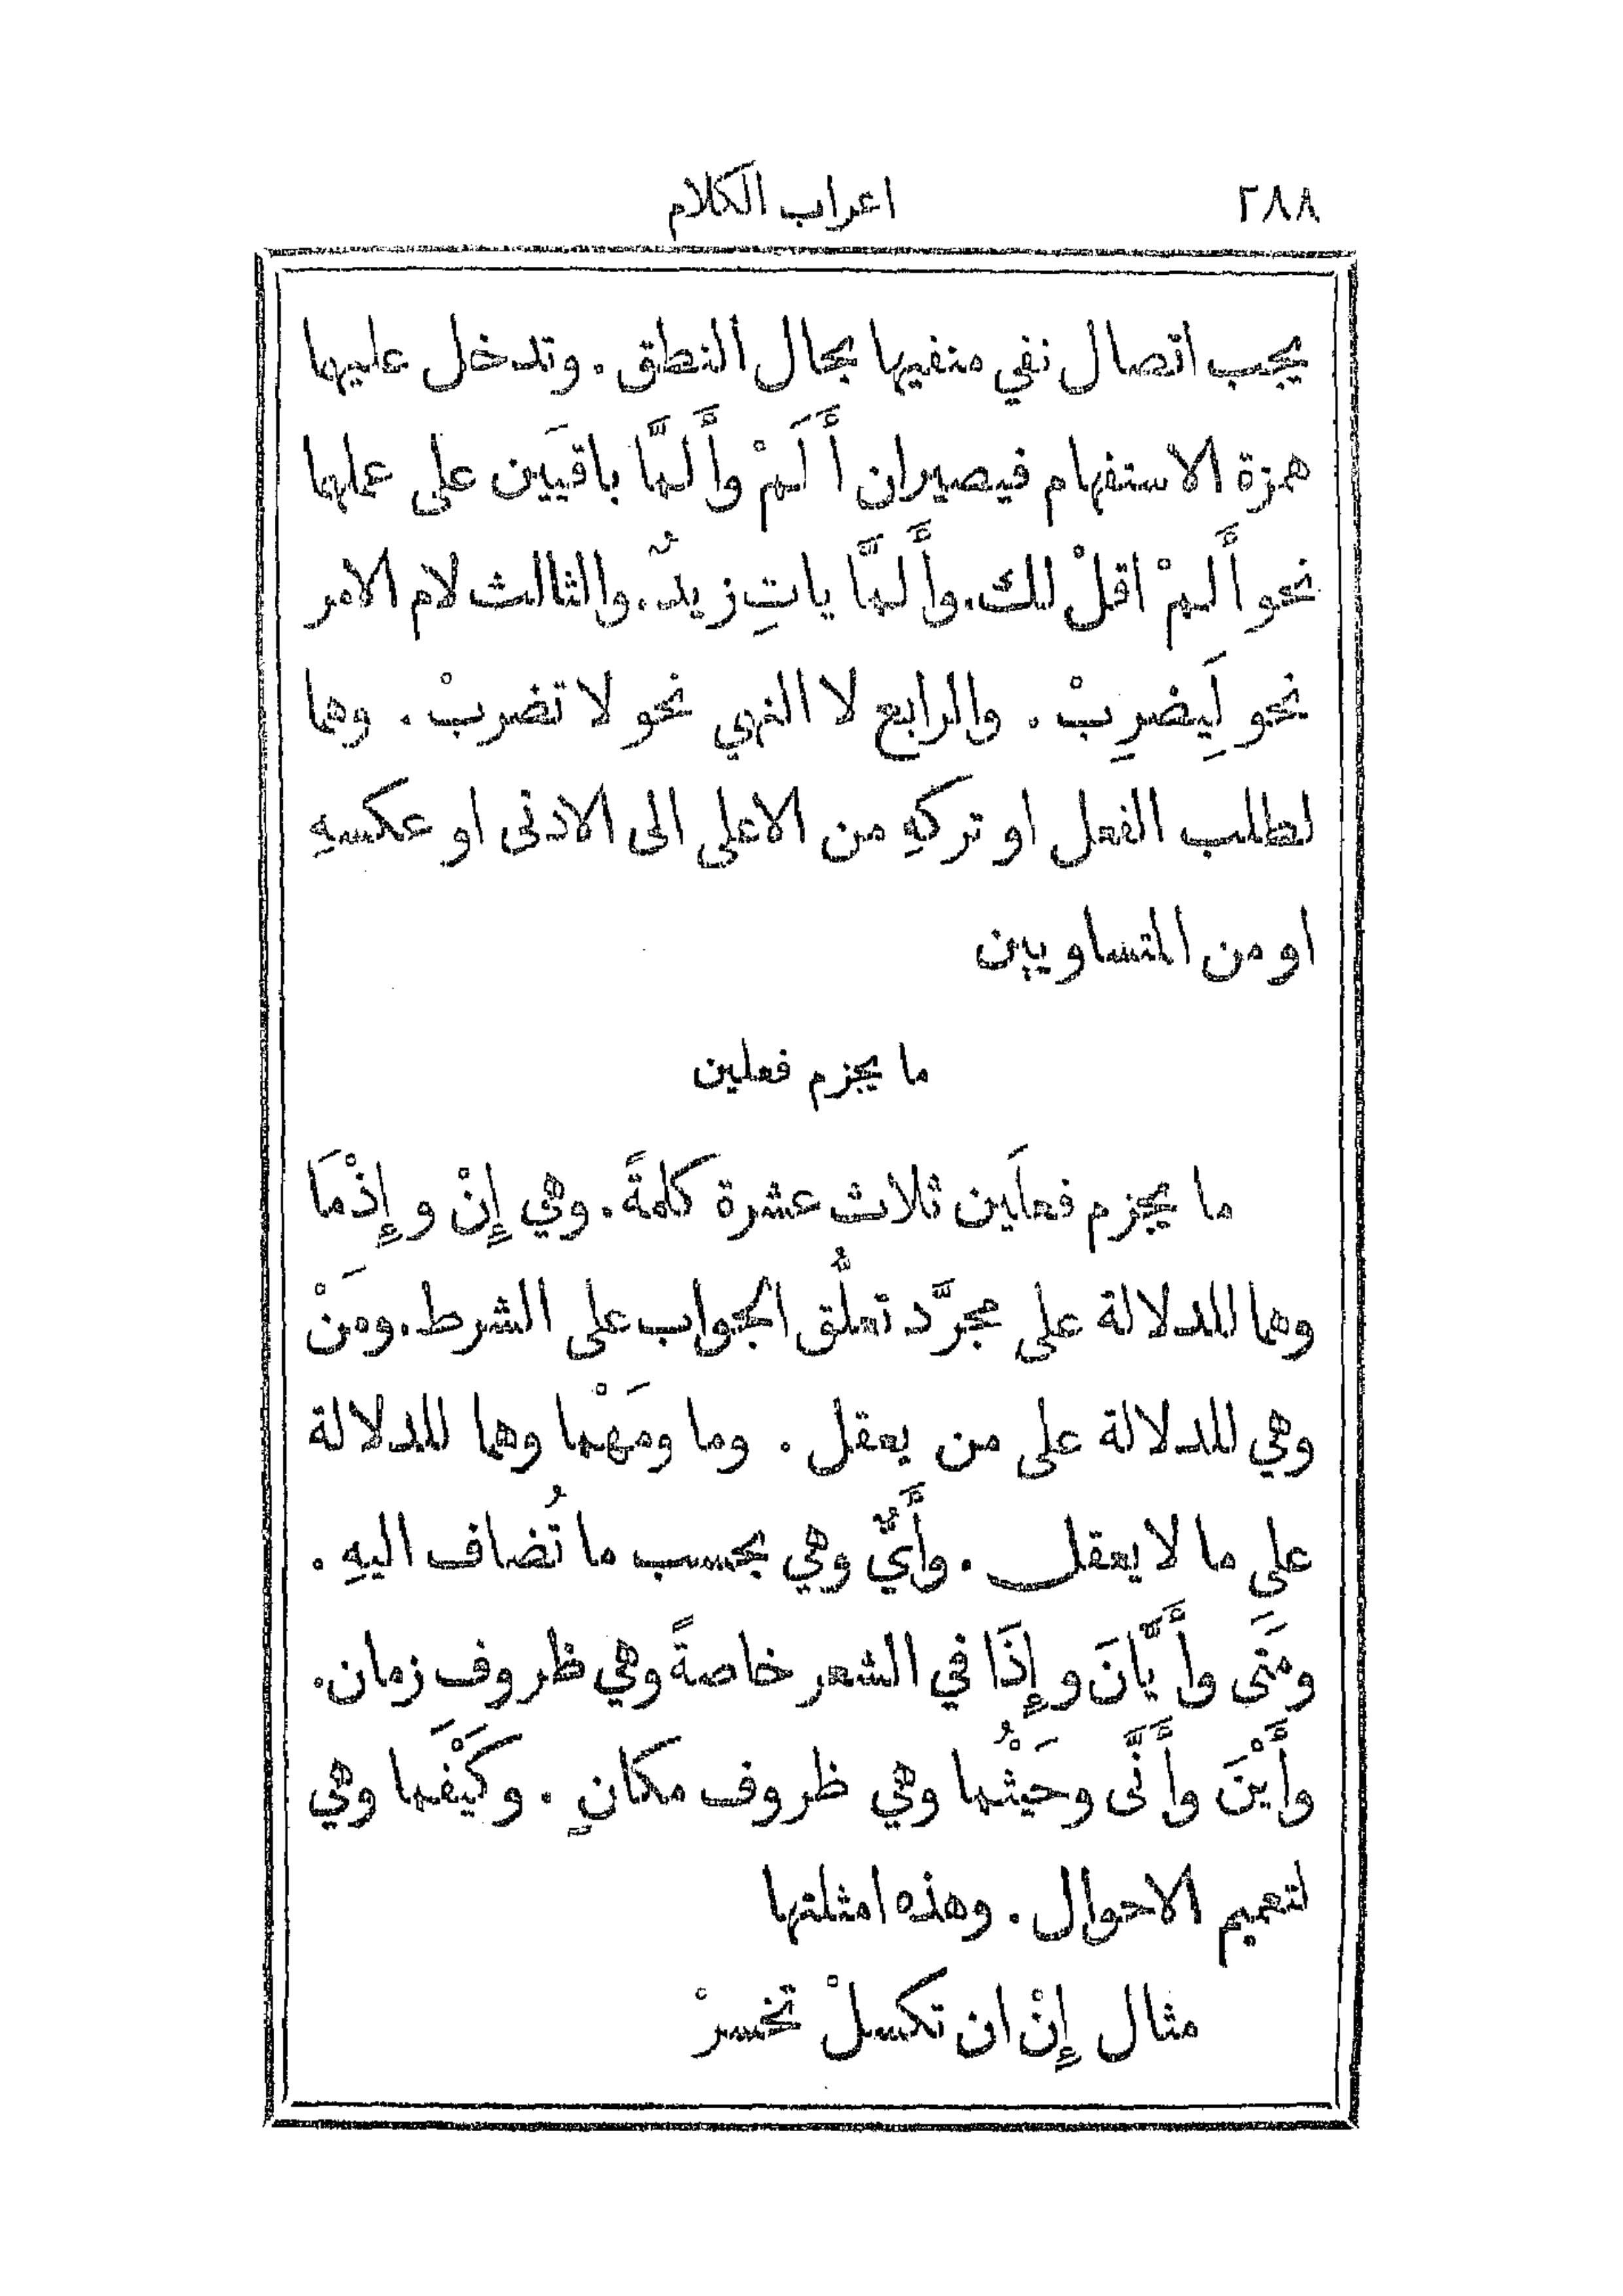 ٢٨٨ اعراب الكلام
يجب اتصال نفي منفيها بحال النطق. وتدخل عليهما
همزة الاستفهام فيصيران أَلَمْ وأَلمَّا باقيَين على عملهما
نحو أَلمْ اقلْ لك. وأَلمَّا ياتِ زيدٌ. والثالث لام الامر
نحو لِيَضرِبْ. والرابع لا النهي نحو لا تضربْ. وهما
لطلب الفعل او تركهِ من الاعلى الى الادنى او عكسهِ
او من المتساويين
ما يجزم فعلين
ما يجزم فعلَين ثلاث عشرة كلمةً. وهي إِنْ وإِذْمَا
وهما للدلالة على مجرَّد تعلُّق الجواب على الشرط. ومَنْ
وهي للدلالة على من يعقل. وما ومَهْما وهما للدلالة
على ما لا يعقل. وأَيٌّ وهي بحسب ما تُضاف اليهِ.
ومَتَى وأَيَّانَ وإِذَا في الشعر خاصةً وهي ظروف زمان.
وأَيْنَ وأَنَّى وحَيْثُما وهي ظروف مكانٍ. وكَيْفَما وهي
لتعميم الاحوال. وهذه امثلتها
مثال إِنْ ان تكسلْ تخسرْ